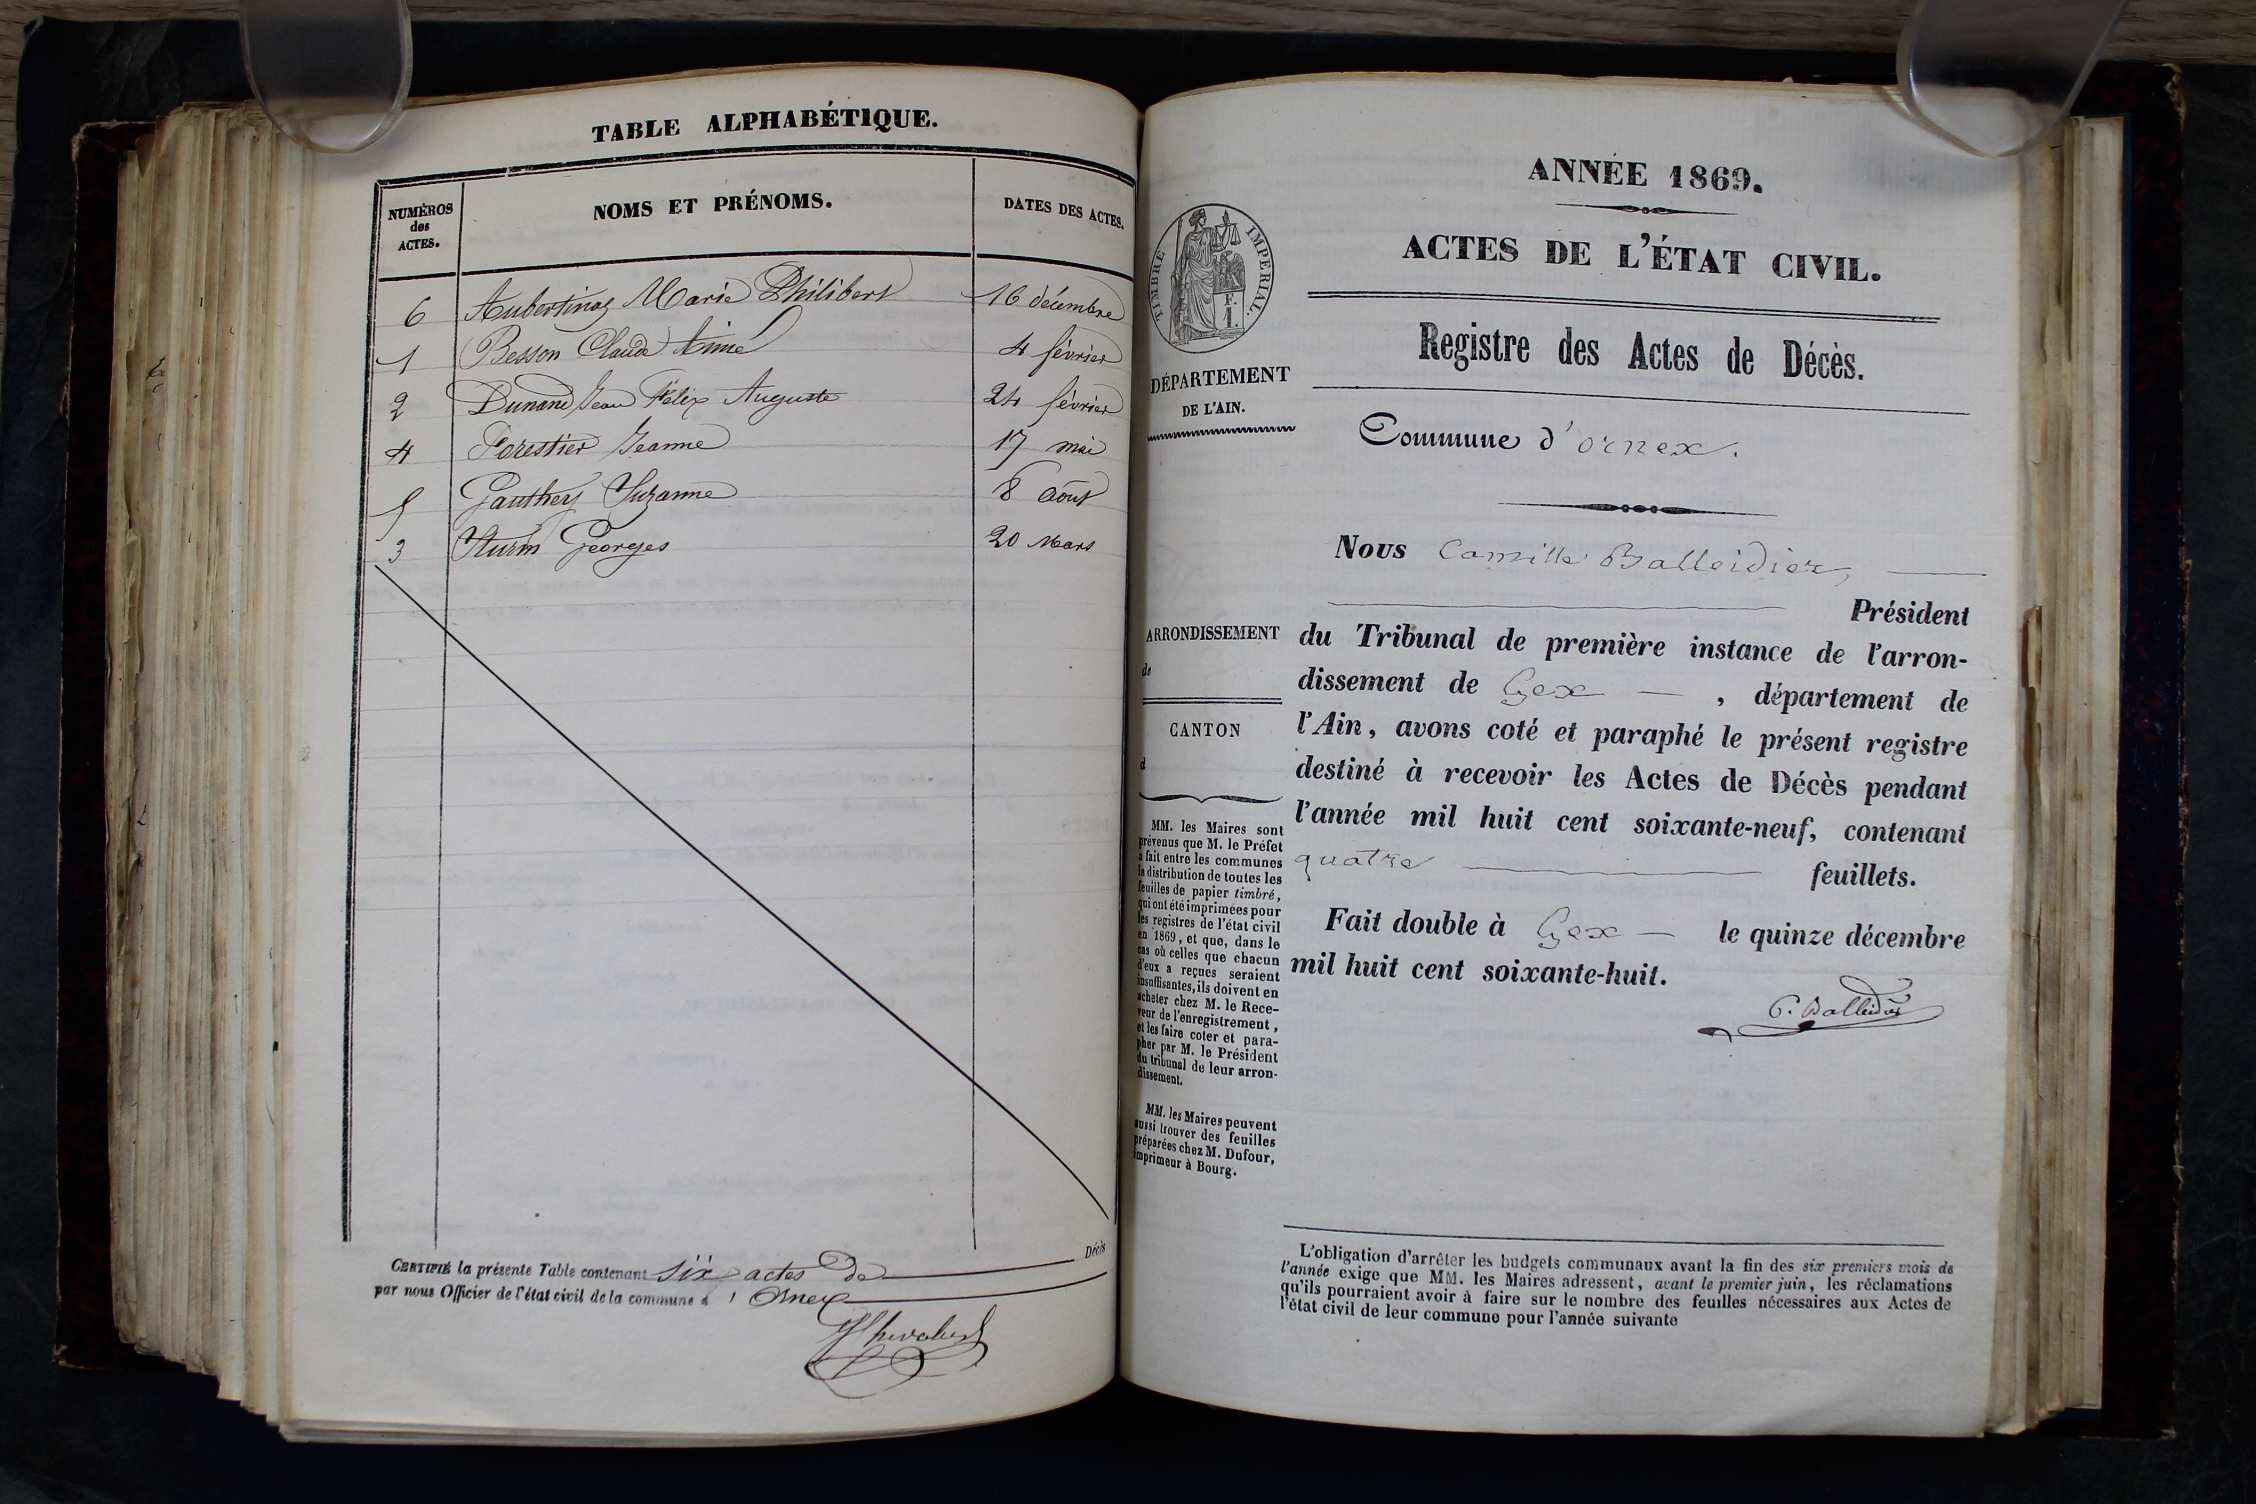 TABLE ALPHABÉTIQUE.
NUMÉROS
des
ACTES.
NOMS ET PRÉNOMS.
DATES DES ACTES.
6 Aubertinaz Marie Philibert 16 décembre
1 Besson Claude Aimé 4 février
2 Dunand Jean Félix Auguste 24 février
4 Forestier Jeanne 17 mai
5 Gauthey Suzanne 8 Août
3 Sturm Georges 20 Mars
CERTIFIÉ la présente Table contenant six actes de Décès
par nous Officier de l'état civil de la commune d' Ornex
ANNÉE 1869.
ACTES DE L'ÉTAT CIVIL.
Registre des Actes de Décès.
TIMBRE IMPÉRIAL.
DÉPARTEMENT
DE L'AIN.
Commune d'ornex.
Nous Camille Balleidier,
Président
ARRONDISSEMENT
de
CANTON
d
du Tribunal de première instance de l'arron-
dissement de Gex — , département de
l'Ain, avons coté et paraphé le présent registre
destiné à recevoir les Actes de Décès pendant
l'année mil huit cent soixante-neuf, contenant
quatre feuillets.
Fait double à Gex — le quinze décembre
mil huit cent soixante-huit.
C. Balleidier
MM. les Maires sont
prévenus que M. le Préfet
a fait entre les communes
la distribution de toutes les
feuilles de papier timbré,
qui ont été imprimées pour
les registres de l'état civil
en 1869, et que, dans le
cas où celles que chacun
d'eux a reçues seraient
insuffisantes, ils doivent en
acheter chez M. le Rece-
veur de l'enregistrement,
et les faire coter et para-
pher par M. le Président
du tribunal de leur arron-
dissement.
MM. les Maires peuvent
aussi trouver des feuilles
préparées chez M. Dufour,
imprimeur à Bourg.
L'obligation d'arrêter les budgets communaux avant la fin des six premiers mois de
l'année exige que MM. les Maires adressent, avant le premier juin, les réclamations
qu'ils pourraient avoir à faire sur le nombre des feuilles nécessaires aux Actes de
l'état civil de leur commune pour l'année suivante